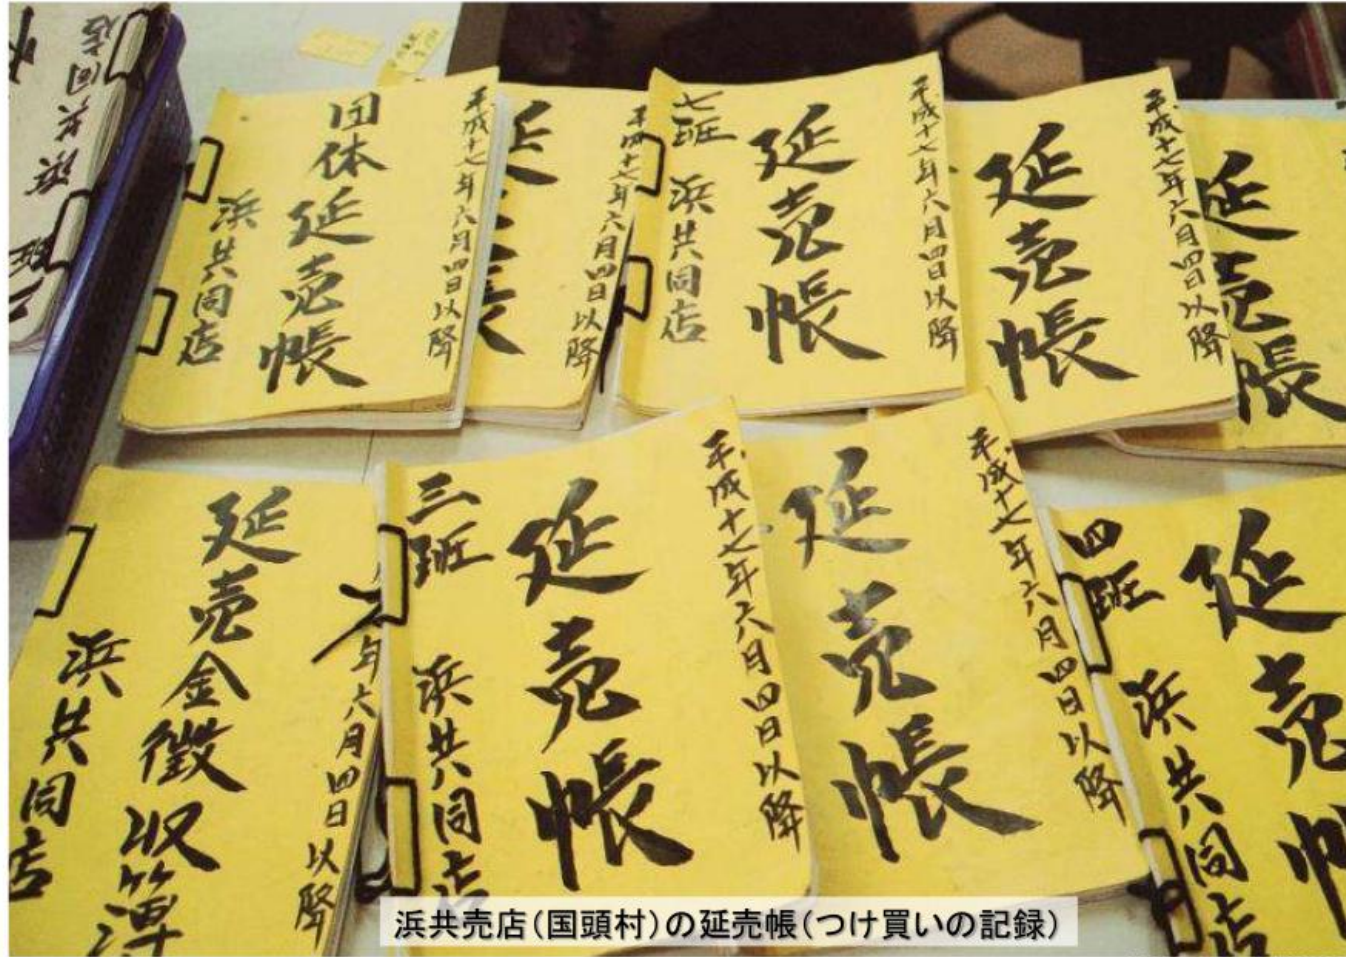 平成十七年六月四日以降
団体延売帳
浜共同店
平成十七年六月四日以降
延売帳
平成十七年六月四日以降
七班
延売帳
浜共同店
平成十七年六月四日以降
延売帳
延売帳
浜共同店
班
年六月四日以降
延売金徴収簿
浜共同店
平成十七年六月四日以降
三班
延売帳
浜共同店
平成十七年六月四日以降
延売帳
四班
延売帳
浜共同店
浜共売店(国頭村)の延売帳(つけ買いの記録)